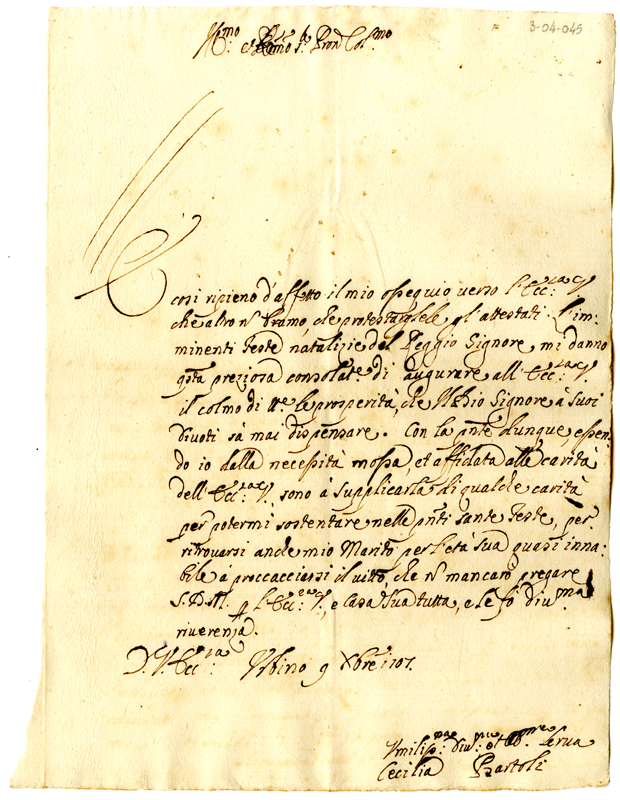 3-04-045
Ill:mo et Ecc:mo S:r Pron Col:mo
E cosi ripieno d'affetto il mio ossequio verso l'Ecc:za V.
che altro n̄ bramo, che protestargliele gl'attestati. L'im-
minenti feste natalizie del Reggio Signore, mi danno
q̄sta preziosa consolat.e di augurare all'Ecc:za V.
il colmo di tt.e le prosperità, che Iddio Signore à suoi
Divoti sà mai dispensare. Con la p̄nte dunque, essen-
do io dalla necessità mossa, et affidata alla carità
dell'Ecc:za V. sono à supplicarla di qualche carità
per potermi sostentare nelle p̄nti sante feste, per
ritrovarsi anche mio Marito per l'età sua quasi inna-
bile à proccacciarsi il vitto, che n̄ mancarò pregare
S.D.M. p l'Ecc:za V., e Casa Sua tutta, e le fò div.ma
riverenza.
D. V. Ecc:za Urbino 9 Xbre 1707.
Umiliss.ma div.ma et obb.ma serva
Cecilia Bartoli